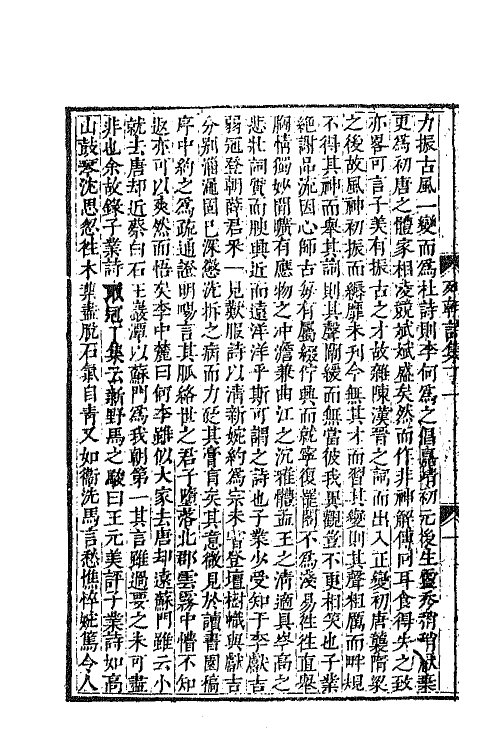 力振古風一變而爲杜詩則李何爲之倡嘉靖初元後生靈秀稍稍厭棄
更爲初唐之體家相凌競斌斌盛矣然而作非神解傳同耳食得失之致
亦畧可言子美有振古之才故雜陳漢晉之詞而出入正變初唐襲隋梁
之後故風神初振而縟靡未刊今無其才而習其變則其聲粗厲而畔規
不得其神而舉其詞則其聲闡緩而無當彼我異觀豈不更相笑也子業
絶謝品流因心師古每有屬綴佇興而就寧復罷閣不爲淺易徃徃直舉
胸情獨妙閒曠有應物之冲澹兼曲江之沉雅體孟王之清適具岑高之
悲壯詞質而腴興近而遠洋洋乎斯可謂之詩也子業少受知于李獻吉
弱冠登朝薛君采一見歎服詩以清新婉約爲宗未嘗登壇樹幟與獻吉
分别淄澠固已深懲洗拆之病而力砭其膏肓矣其意微見於讀書園稿
序中約之爲疏通證明暢言其脈絡世之君子墮落北郡雲霧中懵不知
返亦可以爽然而悟矣李中麓曰何李雖似大家去唐却遠蘇門雖云小
就去唐却近蔡白石王巖潭以蘇門爲我朝第一其言雖過要之未可盡
非也余故錄子業詩 取冠丁集云新野馬之駿曰王元美評子業詩如高
山鼓琴沈思忽徃木葉盡脱石氣自青又如衞洗馬言愁憔悴婉篤令人
列朝詩集丁一
一